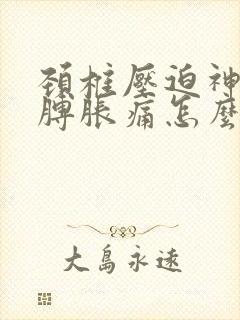 頚椎壓迫神
髆脹痛怎麼
大島永遠